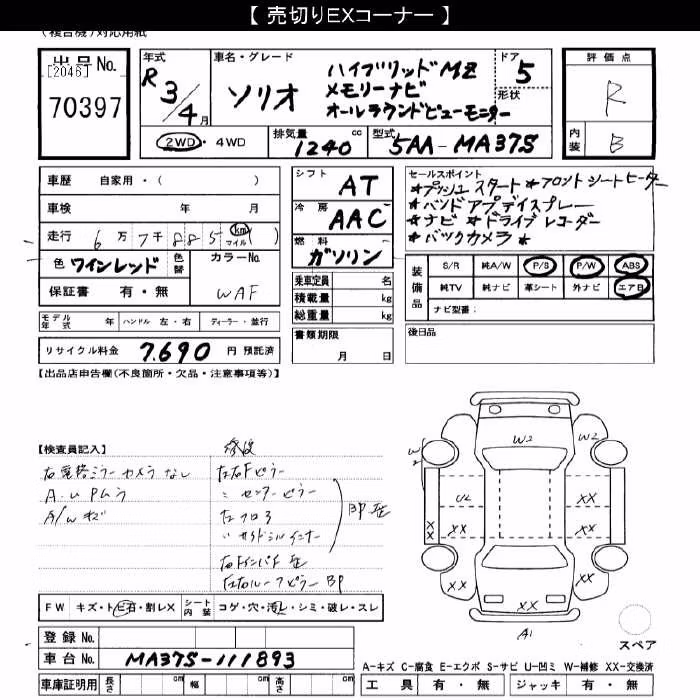 【 売切りEXコーナー 】
(複合機)対応用紙
出品No.
[2046]
70397
年式
R 3/4月
車名・グレード
ソリオ
ハイブリッドMZ
メモリーナビ
オールラウンドビューモニター
ドア
5
形状
評価点
R
内装
B
2WD・4WD
排気量
1240 cc
型式
5AA-MA37S
車歴 自家用・( )
車検 年 月
走行 6万7千885 km マイル ( )
色 ワインレッド
色替
カラーNo.
WAF
保証書 有・無
シフト
AT
冷房
AAC
燃料
ガソリン
乗車定員 名
積載量 kg
総重量 kg
セールスポイント
★プッシュスタート★フロントシートヒーター
★ハンドアプデイスプレー
★ナビ★ドライブレコーダー
★バックカメラ★
装備品
S/R 純A/W P/S P/W ABS
純TV 純ナビ 革シート 外ナビ エアB
ナビ型番:
モデル年式 年 ハンドル 左・右 ディーラー・並行
リサイクル料金 7,690 円 預託済
書類期限
月 日
後日品
【出品店申告欄(不良箇所・欠品・注意事項等)】
【検査員記入】
修復
右電格ミラー カメラなし
A.u Pムラ
A/wキズ
左右Fピラー
〃 センターピラー
左フロア
〃 サイドシルインナー
BP歪
右Fインパネ歪
左右ルーフピラー BP
W2
W2
W2
U2
XX
XX
XX
XX
XX
XX
XX
XX
A1
スペア
FW キズ・トビ石・割レX
シート内装 コゲ・穴・汚レ・シミ・破レ・スレ
登録No.
車台No. MA37S-111893
車庫証明用 長さ cm 幅 cm 高さ cm
A-キズ C-腐食 E-エクボ S-サビ U-凹ミ W-補修 XX-交換済
工具 有・無 ジャッキ 有・無